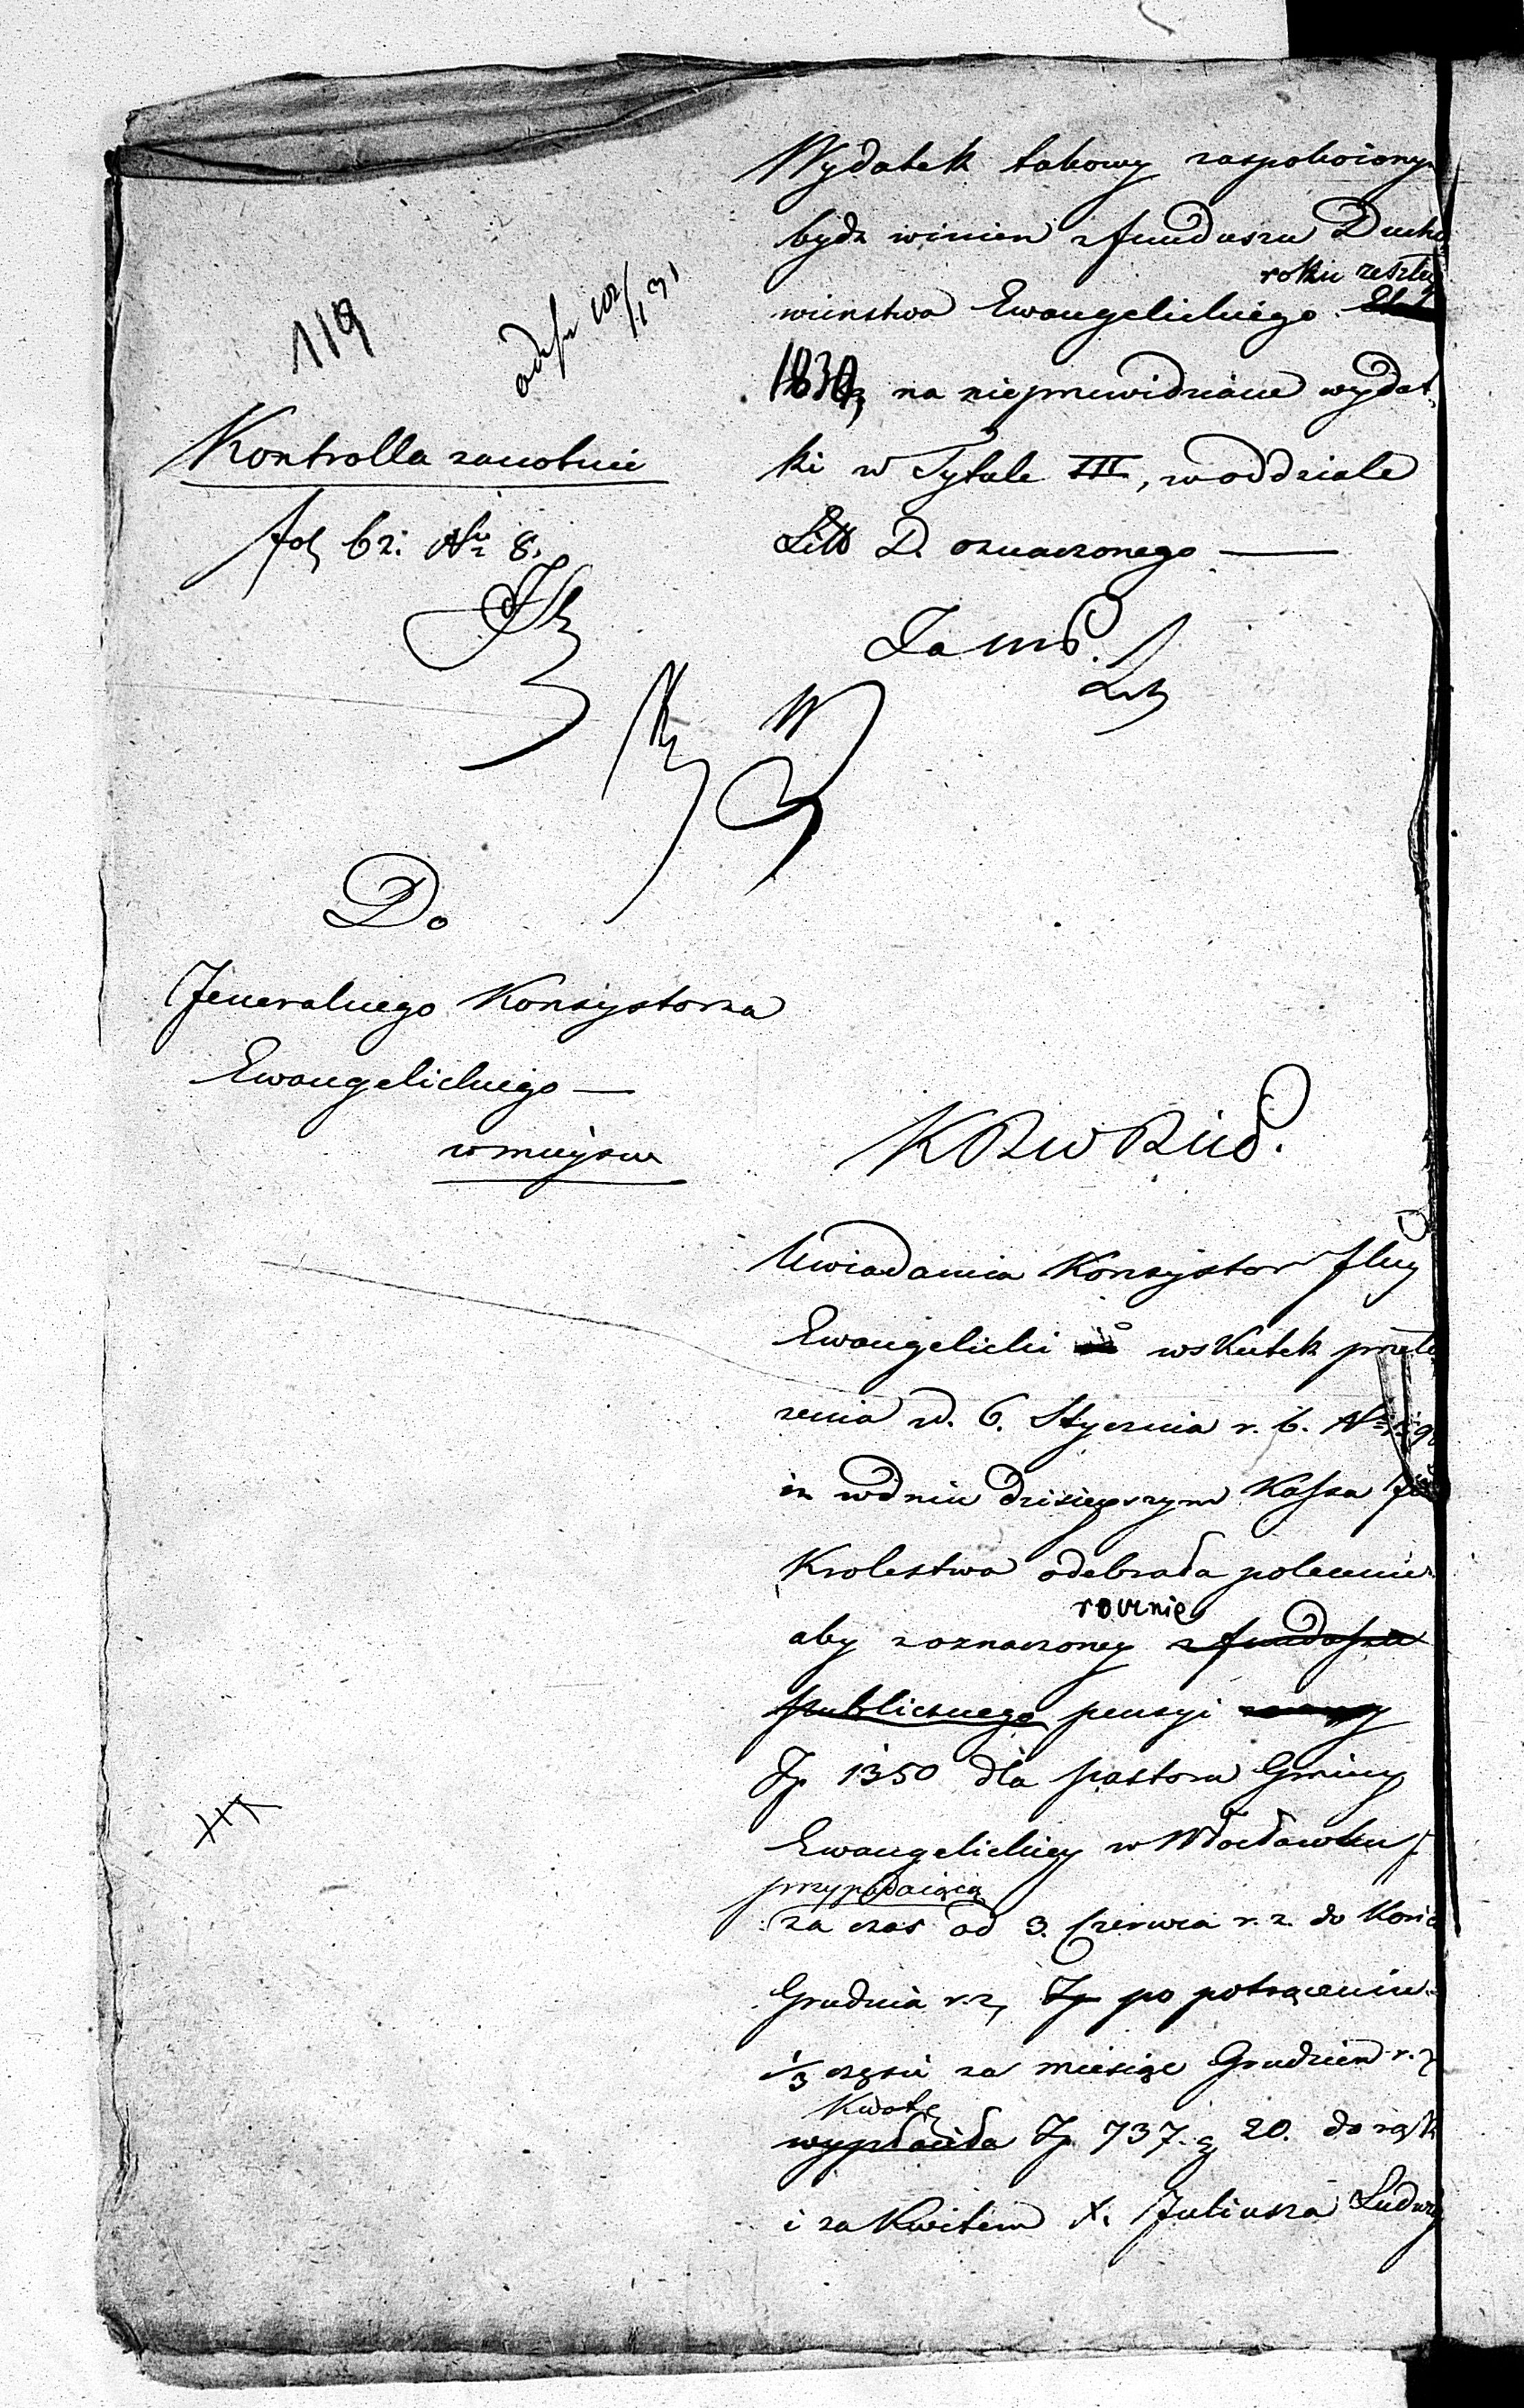 Wydatek takowy zaspokoiony
bydź winien z funduszu Ducho
roku zeszłeg
wieństwa Ewangelickiego
1830, na nieprzewidziane wydat
ki w Tytule III, w oddziale
Litt D. oznaczonego —
119
Kontrolla zanotuie
fol 62. Nr 8.
Do
Jeneralnego Konsystorza
Ewangelickiego —
w mieyscu
K R W R i i O P.
Uwiadamia Konsystorz Jlny
Ewangelicki wskutek przeło
żenia d. 6. Stycznia r. b. Nr
iż w dniu dzisieyszym Kassa
Krolestwa odebrała polecenie
rocznie
aby z oznaczoney z funduszu
publicznego pensyi
Zp 1350 dla pastora Gminy
Ewangelickiey w Włocławku
przypadaiącą
za czas od 3. Czerwca r. z. do Końc
Grudnia r. z, Zp po potrąceniu
1/3 części za miesiąc Grudzień r. z
Kwotę
wypłaciła Zp 737. g 20. do rąk
i za Kwitem X. Juliusza Ludwi